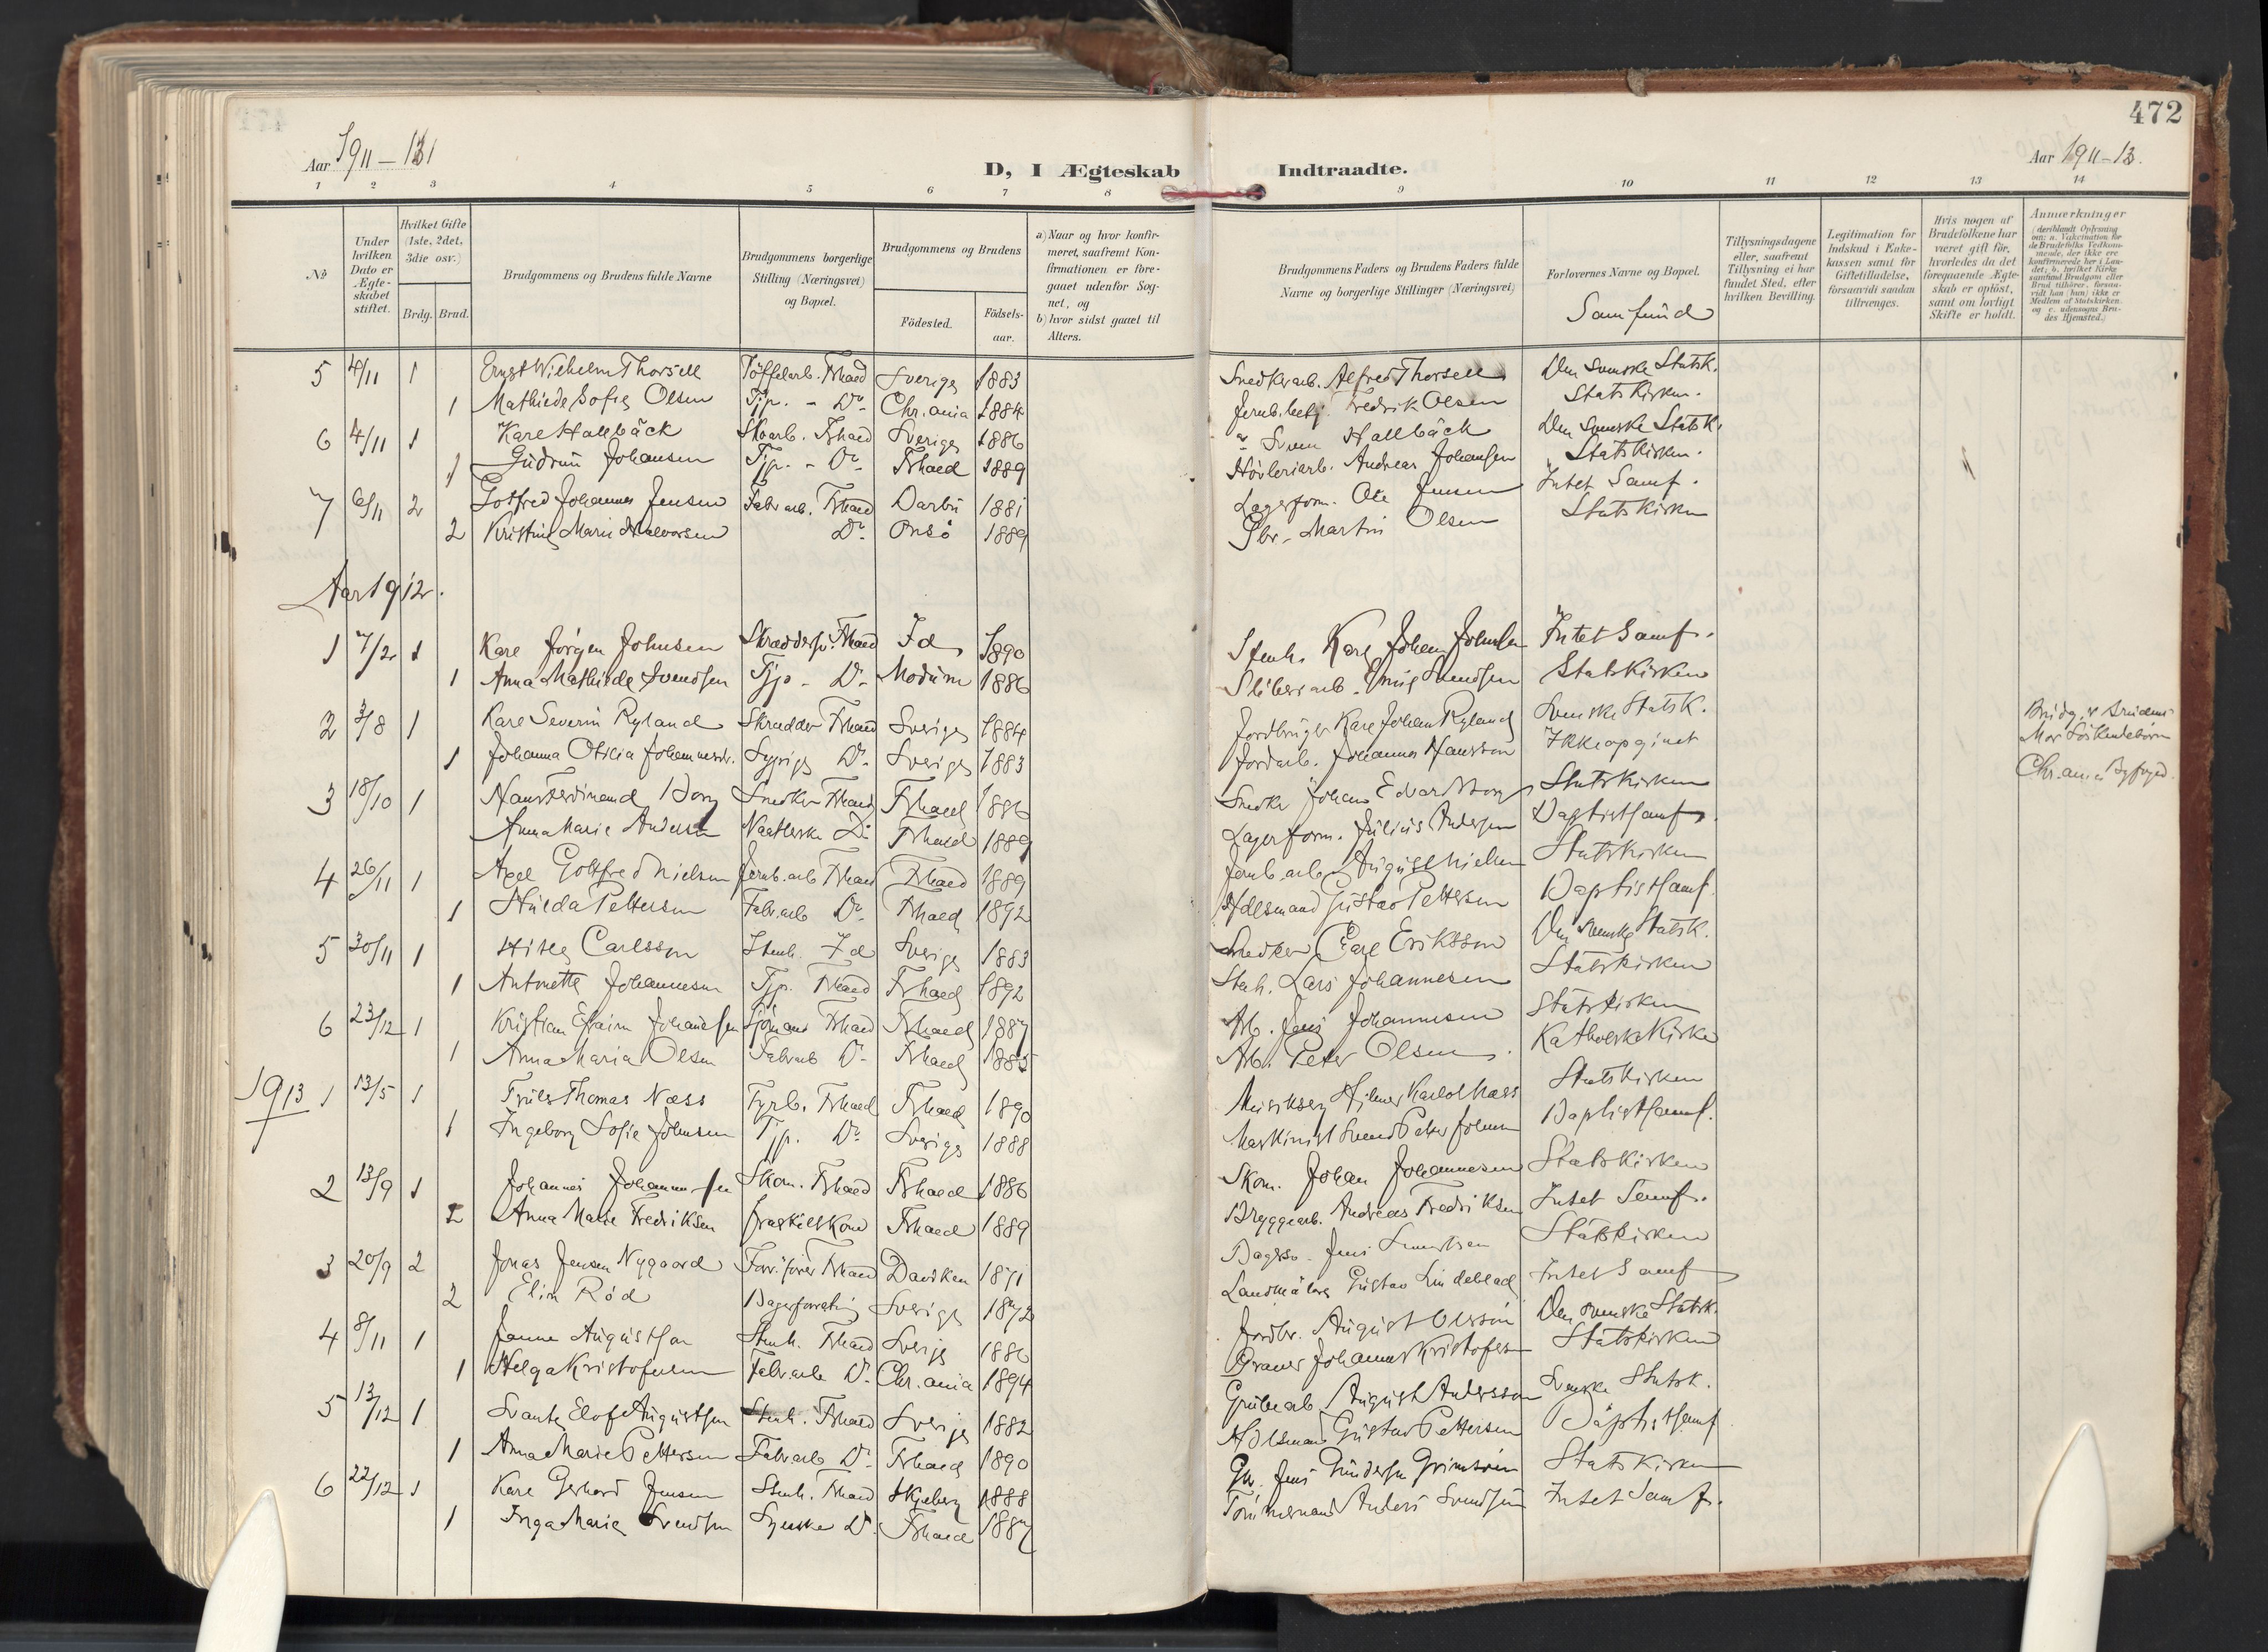 472
Aar 1911-131
D, I Ægteskab Indtraadte.
Aar 1911-13.
1 2 3 4 5 6 7 8 9 10 11 12 13 14
No
Under hvilken Dato er Ægteskabet stiftet.
Hvilket Gifte (1ste, 2det, 3die osv.)
Brdg. Brud.
Brudgommens og Brudens fulde Navne
Brudgommens borgerlige Stilling (Næringsvei) og Bopæl.
Brudgommens og Brudens
Födested. Födselsaar.
a) Naar og hvor konfirmeret, saafremt Konfirmationen er foregaaet udenfor Sognet, og
b) hvor sidst gaaet til Alters.
Brudgommens Faders og Brudens Faders fulde Navne og borgerlige Stillinger (Næringsvei)
Forlovernes Navne og Bopæl.
Samfund
Tillysningsdagene eller, saafremt Tillysning ei har fundet Sted, efter hvilken Bevilling.
Legitimation for Indskud i Enkekassen samt for Giftetilladelse, forsaavidt saadan tiltrænges.
Hvis nogen af Brudefolkene har været gift för, hvorledes da det foregaaende Ægteskab er oplöst, samt om lovligt Skifte er holdt.
Anmærkninger (deriblandt Oplysning om: a. Vakcination for de Brudefolks Vedkommende, der ikke ere konfirmerede her i Landet; b. hvilket Kirkesamfund Brudgom eller Brud tilhörer, forsaavidt han (hun) ikke er Medlem af Statskirken, og c. udensogns Brudes Hjemsted.)
5 4/11 1 Ernst Wilhelm Thorsell Töffelarb. Frhald Sverige 1883 Snedkerarb. Alfred Thorsell Den Svenske Statsk.
1 Mathilde Sofie Olsen Tjp. - Do Chr.ania 1884 Jernb.betj. Fredrik Olsen Statskirken.
6 4/11 1 Karl Hallbäck Skoarb. Frhald Sverige 1886 Sven Hallbäck Den Svenske Statsk.
1 Gudrun Johansen Tjp. - Do Frhald 1889 Hövleriarb. Andreas Johansen Statskirken.
7 6/11 2 Gotfred Johannes Jensen Fabr.arb. Frhald Darbu 1881 Lagerform. Ole Jensen Intet Samf.
2 Kristine Marie Halvorsen Do Onsö 1889 Gbr. Martin Olsen Statskirken
Aar 1912.
1 7/2 1 Karl Jörgen Johnsen Skræddersv. Frhald Id 1890 Stenh. Karl Johan Johnsen Intet Samf.
1 Anna Mathilde Svendsen Tjp - Do Modum 1886 Sliberiarb. Emil Svendsen Statskirken
2 3/8 1 Karl Severin Ryland Skrædder Frhald Sverige 1884 Jordbruger Karl Johan Ryland Svenske Statsk. Brudg. & Brudens Mor Söskendebörn
1 Johanna Otilia Johannesdr. Sypige Do Sverige 1883 Jordarb. Johannes Hansson Ikke opgivet Chr.ania Byfoged.
3 18/10 1 Hans Ferdinand Borg Snedker Frhald Frhald 1886 Snedker Johan Edvard Borg Statskirken
Anna Marie Andersen Naatlerske Do Frhald 1889 Lagerform. Julius Andersen Baptistsamf.
4 26/11 1 Axel Gottfred Nielsen Jernb.arb Frhald Frhald 1889 Jernb.arb. August Nielsen Statskirken
1 Hulda Pettersen Fabr.arb Do Frhald 1892 Gustav Pettersen Baptistsamf.
5 30/11 1 Carlsson Stenh. Id Sverige 1883 Snedker Carl Eriksson Den svenske Statsk.
1 Antonette Johannesen Tjp. Frhald Frhald 1892 Stenh. Lars Johannesen Statskirken
6 23/12 1 Kristian Efraim Johannesen Sjömand Frhald Frhald 1887 Arb. Jens Johannesen Statskirken
1 Anna Maria Olsen Fabrarb Do Frhald 1885 Arb. Peter Olsen Katholske Kirke
1913 1 13/5 1 Truls Thomas Næss Fyrb. Frhald Frhald 1890 Hilmer Karlot Næss Statskirken
1 Ingeborg Sofie Johnsen Tjp. Do Sverige 1888 Maskinist Svend Petter Johnsen Baptistsamf.
2 13/9 1 Johannes Johannesen Skom. Frhald Frhald 1886 Skom. Johan Johannesen Statskirken
2 Anna Marie Fredriksen fraskilt Kone Frhald 1889 Bryggearb. Andreas Fredriksen Intet Samf.
3 20/9 2 Jonas Jensen Nygaard Frhald Davikan 1871 Jens Statskirken
2 Elin Röd Bagerforretning Sverige 1872 Landmåler Gustav Lindeblad Intet Samf
4 8/11 1 Janne Augustsson Stenh. Frhald Sverige 1886 Jordbr. August Olsson Den svenske Statsk.
1 Helga Kristofersen Fabr.arb Do Chr.ania 1894 Graver Johannes Kristofersen Statskirken
5 13/12 1 Svante Elof Augustsen Stenh. Frhald Sverige 1882 Grubearb August Andersson Svenske Statsk.
1 Anna Marie Pettersen Fabrarb Do Frhald 1890 Gustav Pettersen Baptistsamf
6 22/12 1 Karl Gerhard Jensen Stenh. Frhald Skjeberg 1888 Jens Gundersen Statskirken
1 Inga Marie Svendsen Syerske Do Frhald 1887 Tömmermand Anders Svendsen Intet Samf.